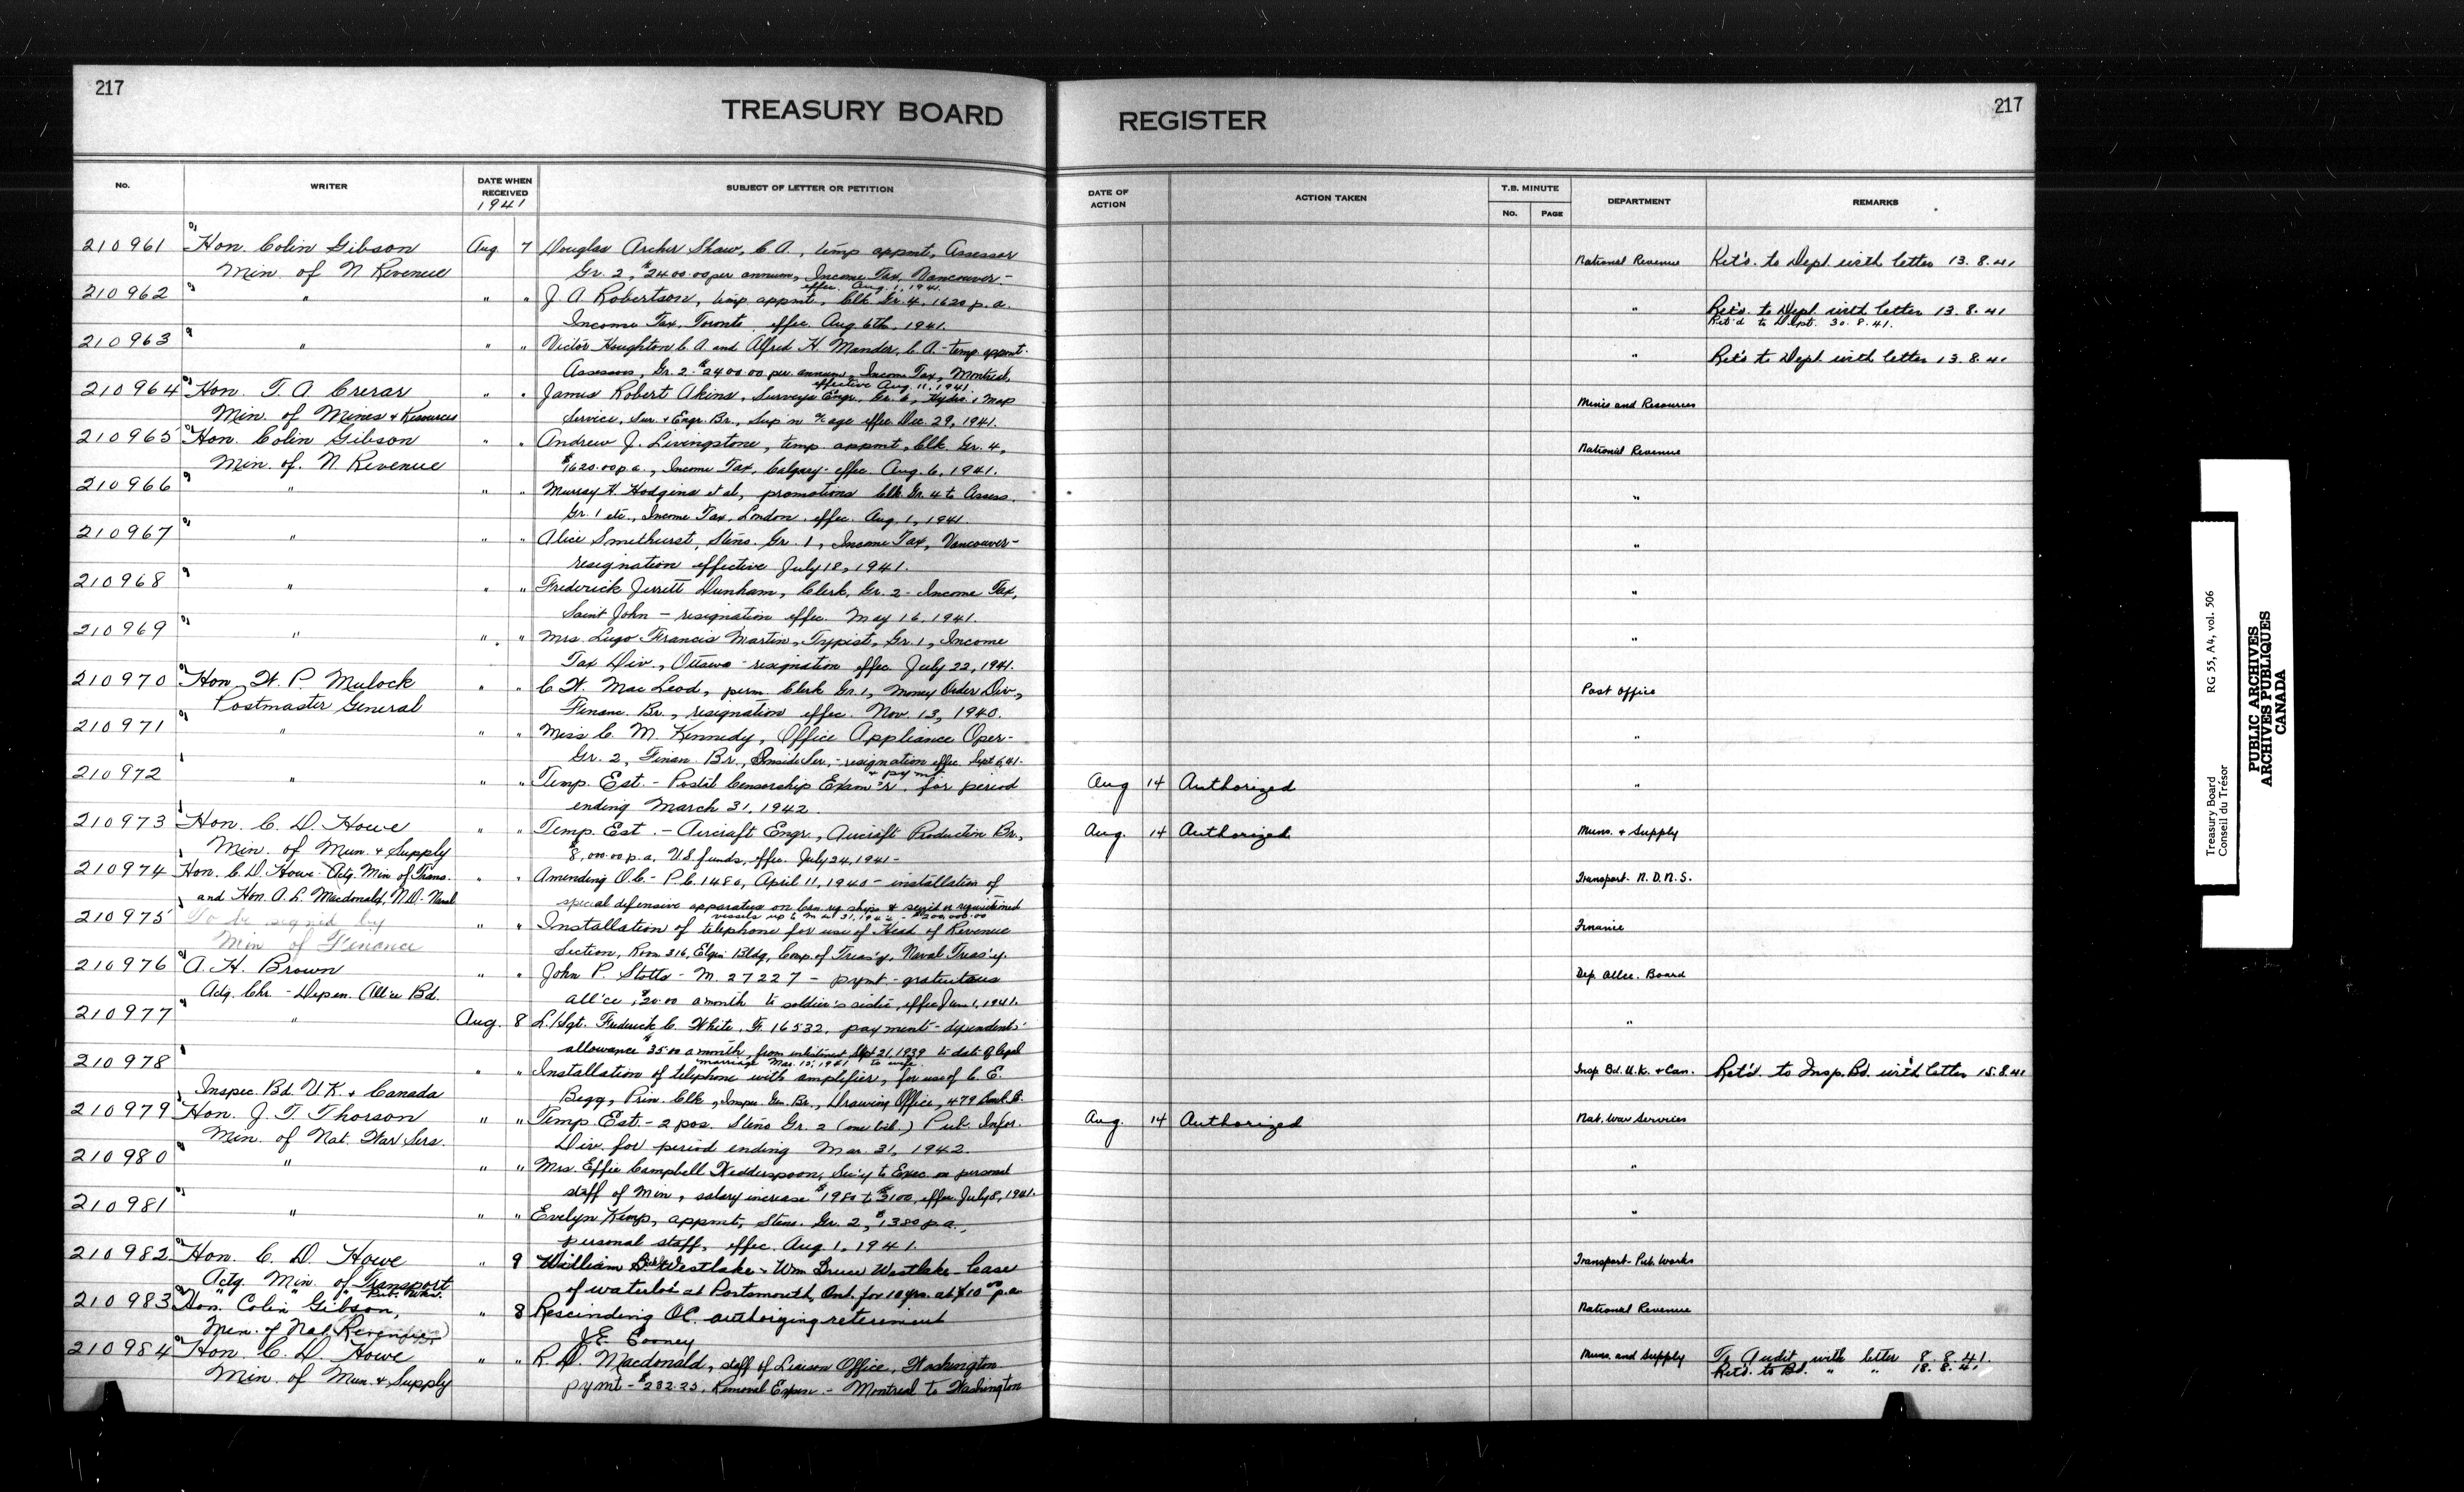 217
TREASURY BOARD REGISTER
217
No. WRITER DATE WHEN RECEIVED 1941 SUBJECT OF LETTER OR PETITION DATE OF ACTION ACTION TAKEN T.B. MINUTE No. PAGE DEPARTMENT REMARKS
210961 Hon. Colin Gibson Aug 7 Douglas Archer Shaw, C.A., temp appmt, Assessor National Revenue Ret'd. to Dept. with letter 13.8.41
Min. of N Revenue Gr. 2, $2400.00 per annum, Income Tax, Vancouver-
effec. Aug. 1, 1941.
210962 " " " J. A. Robertson, temp appmt, Clk Gr. 4, 1620 p.a. " Ret'd. to Dept with letter 13.8.41
Income Tax, Toronto effec. Aug 6th, 1941. Ret'd to Dept. 30.8.41.
210963 " " " Victor Houghton C.A. and Alfred H. Mander, C.A. - temp appmt. " Ret'd to Dept with letter 13.8.41
Assessors, Gr. 2 - $2400.00 per annum, Income Tax, Montreal,
effective Aug. 11, 1941.
210964 Hon. T. A. Crerar " " James Robert Akins, Surveys Engr. Gr. 6, Hydro. & Map Mines and Resources
Min. of Mines & Resources Service, Sur. & Engr. Br., Sup'n a/c age effec. Dec. 29, 1941.
210965 Hon. Colin Gibson " " Andrew J. Livingstone, temp appmt, Clk. Gr. 4, National Revenue
Min. of. N. Revenue $1620.00 p.a., Income Tax, Calgary - effec. Aug. 6, 1941.
210966 " " " Murray H. Hodgins et al, promotions Clk Gr. 4 to Assess. "
Gr. 1 etc., Income Tax, London. effec. Aug. 1, 1941.
210967 " " " Alice Smethurst, Steno. Gr. 1, Income Tax, Vancouver - "
resignation effective July 18, 1941.
210968 " " " Frederick Jerrett Dunham, Clerk, Gr. 2 - Income Tax, "
Saint John - resignation effec. May 16, 1941.
210969 " " " Mrs. Francis Martin, Typist, Gr. 1, Income "
Tax Div., Ottawa - resignation effec. July 22, 1941.
210970 Hon. W. P. Mulock " " C. W. MacLeod, perm. Clerk Gr. 1, Money Order Div., Post Office
Postmaster General Financ. Br., resignation effec. Nov. 13, 1940.
210971 " " " Miss C. M. Kennedy, Office Appliance Oper- "
Gr. 2, Finan. Br., Inside Ser., - resignation effec. Sept 6, 41-
& pymt
210972 " " " Temp. Est - Postal Censorship Exam'r. for period Aug 14 Authorized "
ending March 31, 1942.
210973 Hon. C. D. Howe " " Temp. Est. - Aircraft Engr., Aircraft Production Br., Aug. 14 Authorized Muns. & Supply
Min. of Mun. & Supply $8,000.00 p.a. U.S. funds, effec. July 24, 1941 -
210974 Hon. C. D. Howe - Actg. Min of Trans. " " Amending O.C. - P.C. 1480, April 11, 1940 - installation of Transport - N.D.N.S.
and Hon. A. L. Macdonald, N.D. Naval special defensive apparatus on Can. reg. ships & seized or requisitioned
vessels up to Mar 31, 1942 - $200,000.00
210975 To be signed by " " Installation of telephone for use of Head of Revenue Finance
Min of Finance Section, Room 316, Elgin Bldg, Comp. of Treas'y, Naval Treas'y.
210976 A. H. Brown " " John P. Stotts - M. 27227 - pymt - gratuitous Dep. Allce. Board
Actg. Chr. - Depen. All'ce Bd. all'ce, $20.00 a month to soldier's sister, effec June 1, 1941.
210977 " Aug. 8 L./Sgt. Frederick C. White, F. 16532, payment - dependents' "
allowance $35.00 a month, from enlistment Sept 21, 1939 to date of legal
marriage Mar. 15, 1941 to wife.
210978 " " Installation of telephone with amplifier, for use of C. E. Insp Bd. U.K. & Can. Ret'd. to Insp. Bd. with letter 15.8.41
Inspec. Bd. U.K. & Canada Begg, Prin. Clk, Inspec. Gen. Br., Drawing Office, 479 Bank St.
210979 Hon. J. T. Thorson " " Temp Est. - 2 pos. Steno Gr. 2 (one bil.) Pub. Infor. Aug. 14 Authorized Nat. War Services
Min. of Nat. War Sers. Div. for period ending Mar. 31, 1942.
210980 " " " Mrs. Effie Campbell Wedderspoon, Sec'y to Exec. on personal "
staff of Min, salary increase $1980 to $2100, effec. July 8, 1941.
210981 " " " Evelyn Kemp, appmt, Steno. Gr. 2, $1380 p.a., "
personal staff, effec. Aug. 1, 1941.
210982 Hon. C. D. Howe " 9 William Westlake & Wm Bruce Westlake - Lease Transport - Pub. Works
Actg. Min. of Transport of waterlot at Portsmouth, Ont. for 10 yrs. at $10.00 p.a.
" " " Pub. Wks.
210983 Hon. Colin Gibson, " 8 Rescinding O.C. authorizing retirement National Revenue
Min. of Nat. Revenue J.E. Cooney
210984 Hon. C. D. Howe " " R. D. Macdonald, staff of Liaison Office, Washington Muns. and Supply To Audit with letter 8.8.41.
Min. of Mun. & Supply pymt - $282.25, Removal Expen. - Montreal to Washington Ret'd. to Bd. " " 18.8.41
Treasury Board RG 55, A4, vol. 506
Conseil du Trésor
PUBLIC ARCHIVES
ARCHIVES PUBLIQUES
CANADA